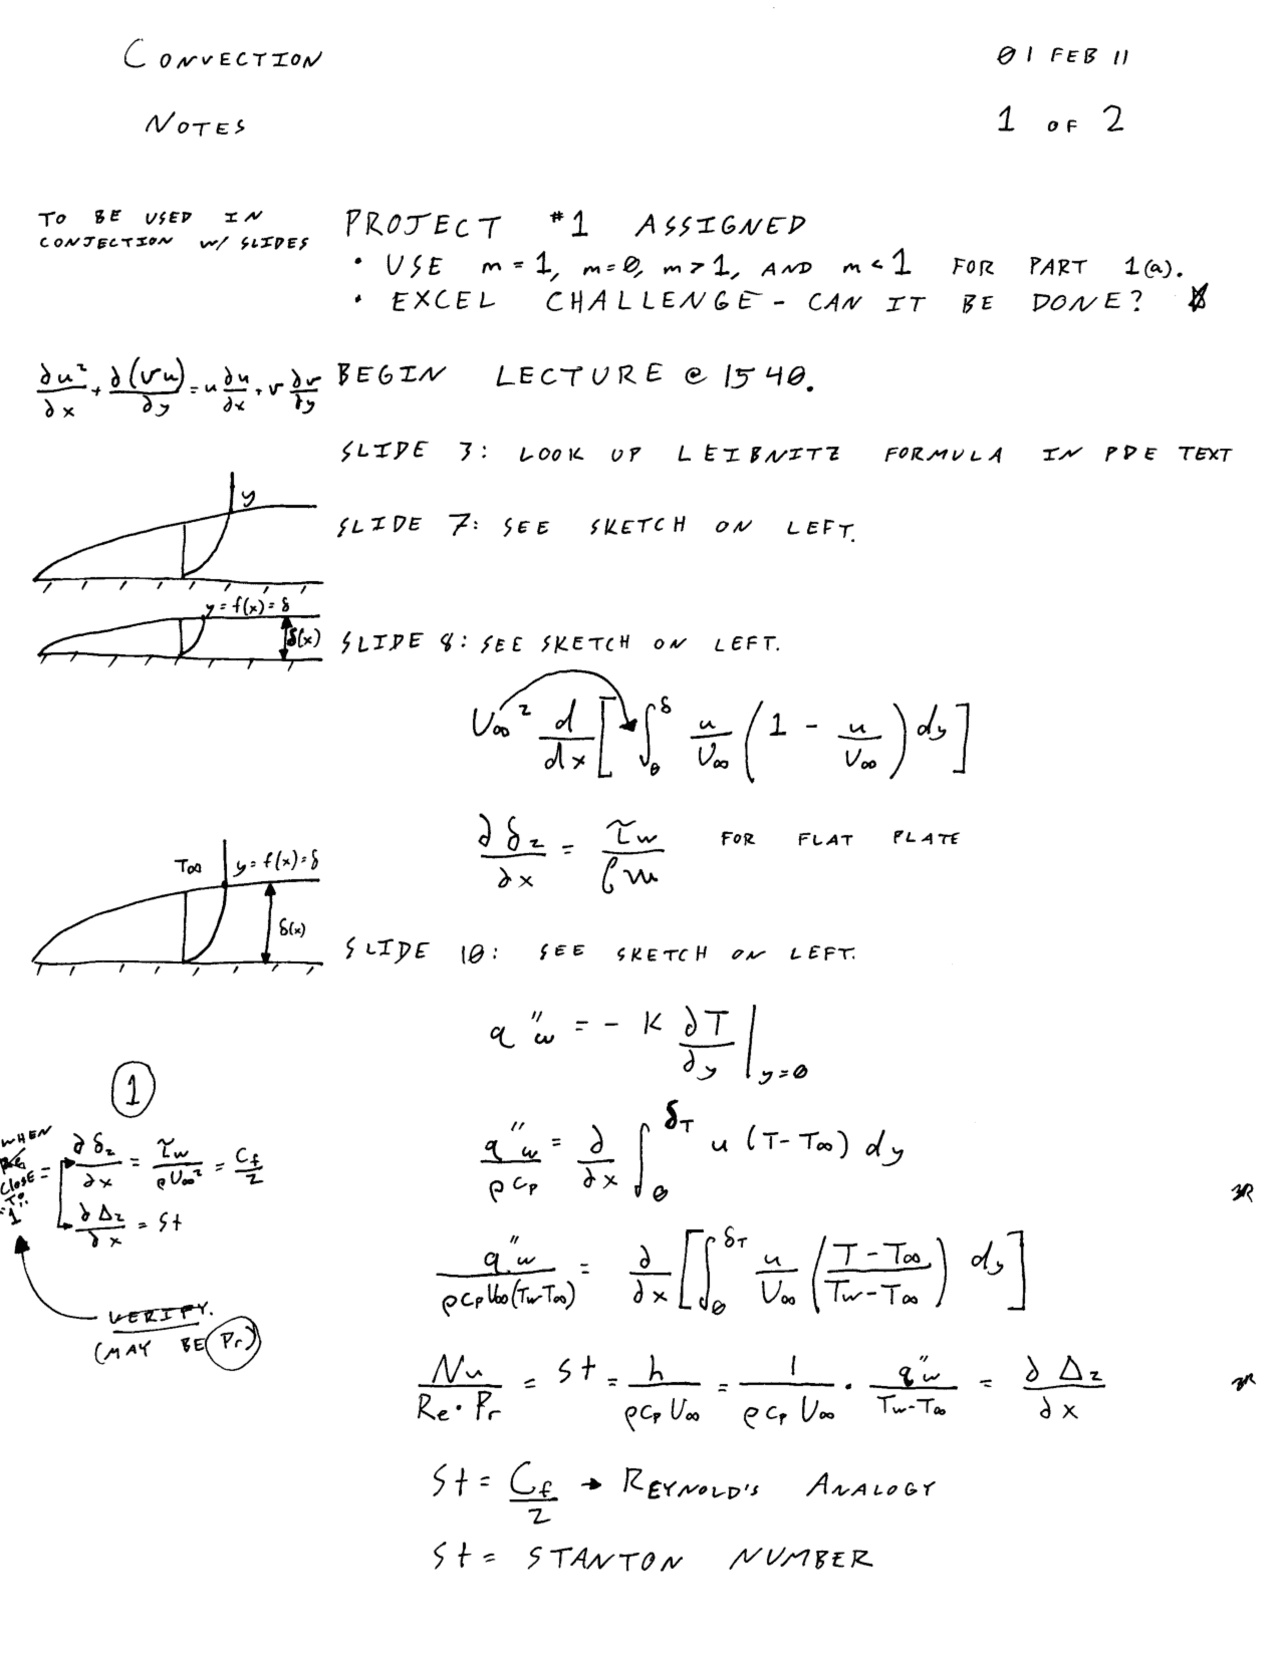 CONVECTION
01 FEB 11
NOTES
1 OF 2
TO BE USED IN
CONJECTION W/ SLIDES
PROJECT #1 ASSIGNED
• USE m = 1, m = 0, m > 1, AND m < 1 FOR PART 1(a).
• EXCEL CHALLENGE - CAN IT BE DONE?
∂u²/∂x + ∂(vu)/∂y = u ∂u/∂x + v ∂v/∂y
BEGIN LECTURE @ 1540.
SLIDE 3: LOOK UP LEIBNITZ FORMULA IN PDE TEXT
y
SLIDE 7: SEE SKETCH ON LEFT.
y = f(x) = δ
δ(x)
SLIDE 8: SEE SKETCH ON LEFT.
U∞² d/dx [ ∫₀^δ u/U∞ (1 - u/U∞) dy ]
∂δ₂/∂x = τw/ρm FOR FLAT PLATE
T∞ y = f(x) = δ
δ(x)
SLIDE 10: SEE SKETCH ON LEFT.
q″w = - K ∂T/∂y |y=0
1
q″w/ρCp = ∂/∂x ∫₀^δT u (T - T∞) dy
WHEN
CLOSE =
TO
"1".
∂δ₂/∂x = τw/ρU∞² = Cf/2
∂Δ₂/∂x = St
q″w/ρCpU∞(Tw-T∞) = ∂/∂x [ ∫₀^δT u/U∞ (T - T∞/Tw - T∞) dy ]
VERIFY.
(MAY BE Pr)
Nu/Re · Pr = St = h/ρCpU∞ = 1/ρCpU∞ · q″w/Tw-T∞ = ∂Δ₂/∂x
St = Cf/2 → REYNOLD'S ANALOGY
St = STANTON NUMBER